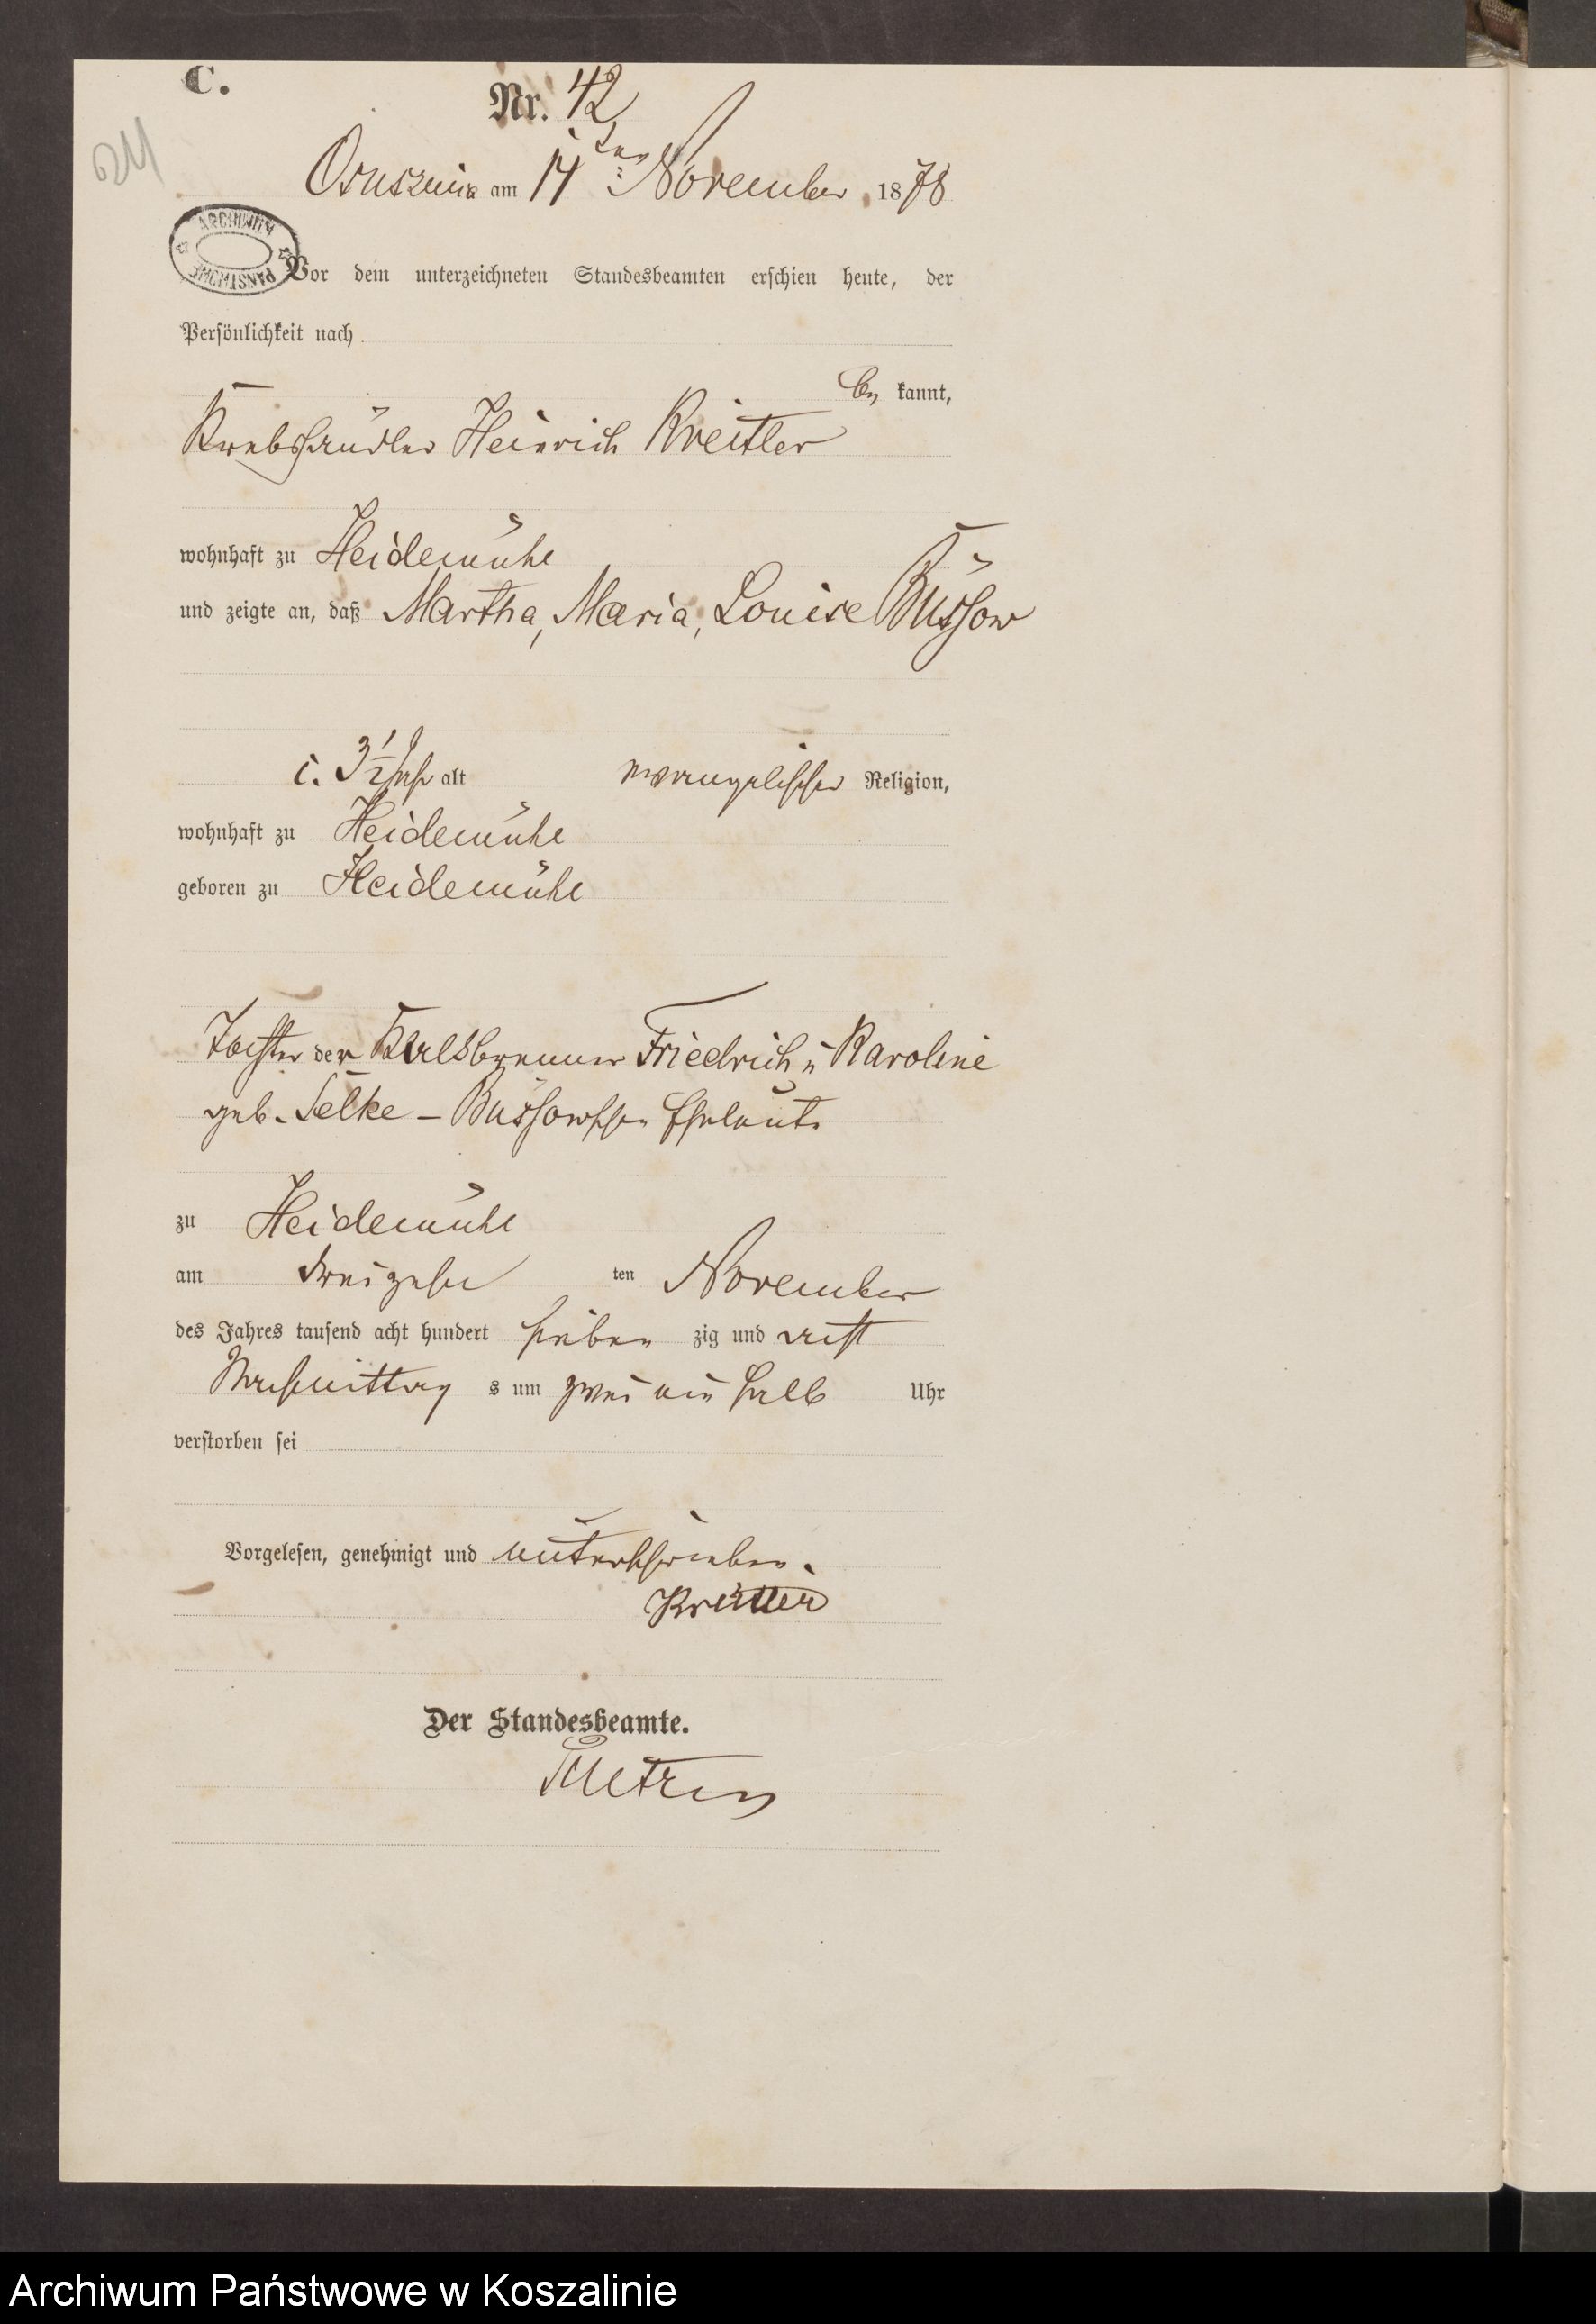 C.
Nr. 42
Osuszniza am 14ten November 1878
ARCHIWUM PAŃSTWOWE
Vor dem unterzeichneten Standesbeamten erschien heute, der
Persönlichkeit nach
be kannt,
Krebshändler Heinrich Kreitler
wohnhaft zu Heidemühl
und zeigte an, daß Martha, Maria, Louise Bussow
3 1/2 Jahr alt evangelischer Religion,
wohnhaft zu Heidemühl
geboren zu Heidemühl
Tochter der Friedrich u Karoline
geb. Selke – Bussowschen Eheleute
zu Heidemühl
am dreizehn ten November
des Jahres tausend acht hundert sieben zig und acht
Nachmittag s um zwei ein halb Uhr
verstorben sei
Vorgelesen, genehmigt und unterschrieben.
Der Standesbeamte.
Archiwum Państwowe w Koszalinie